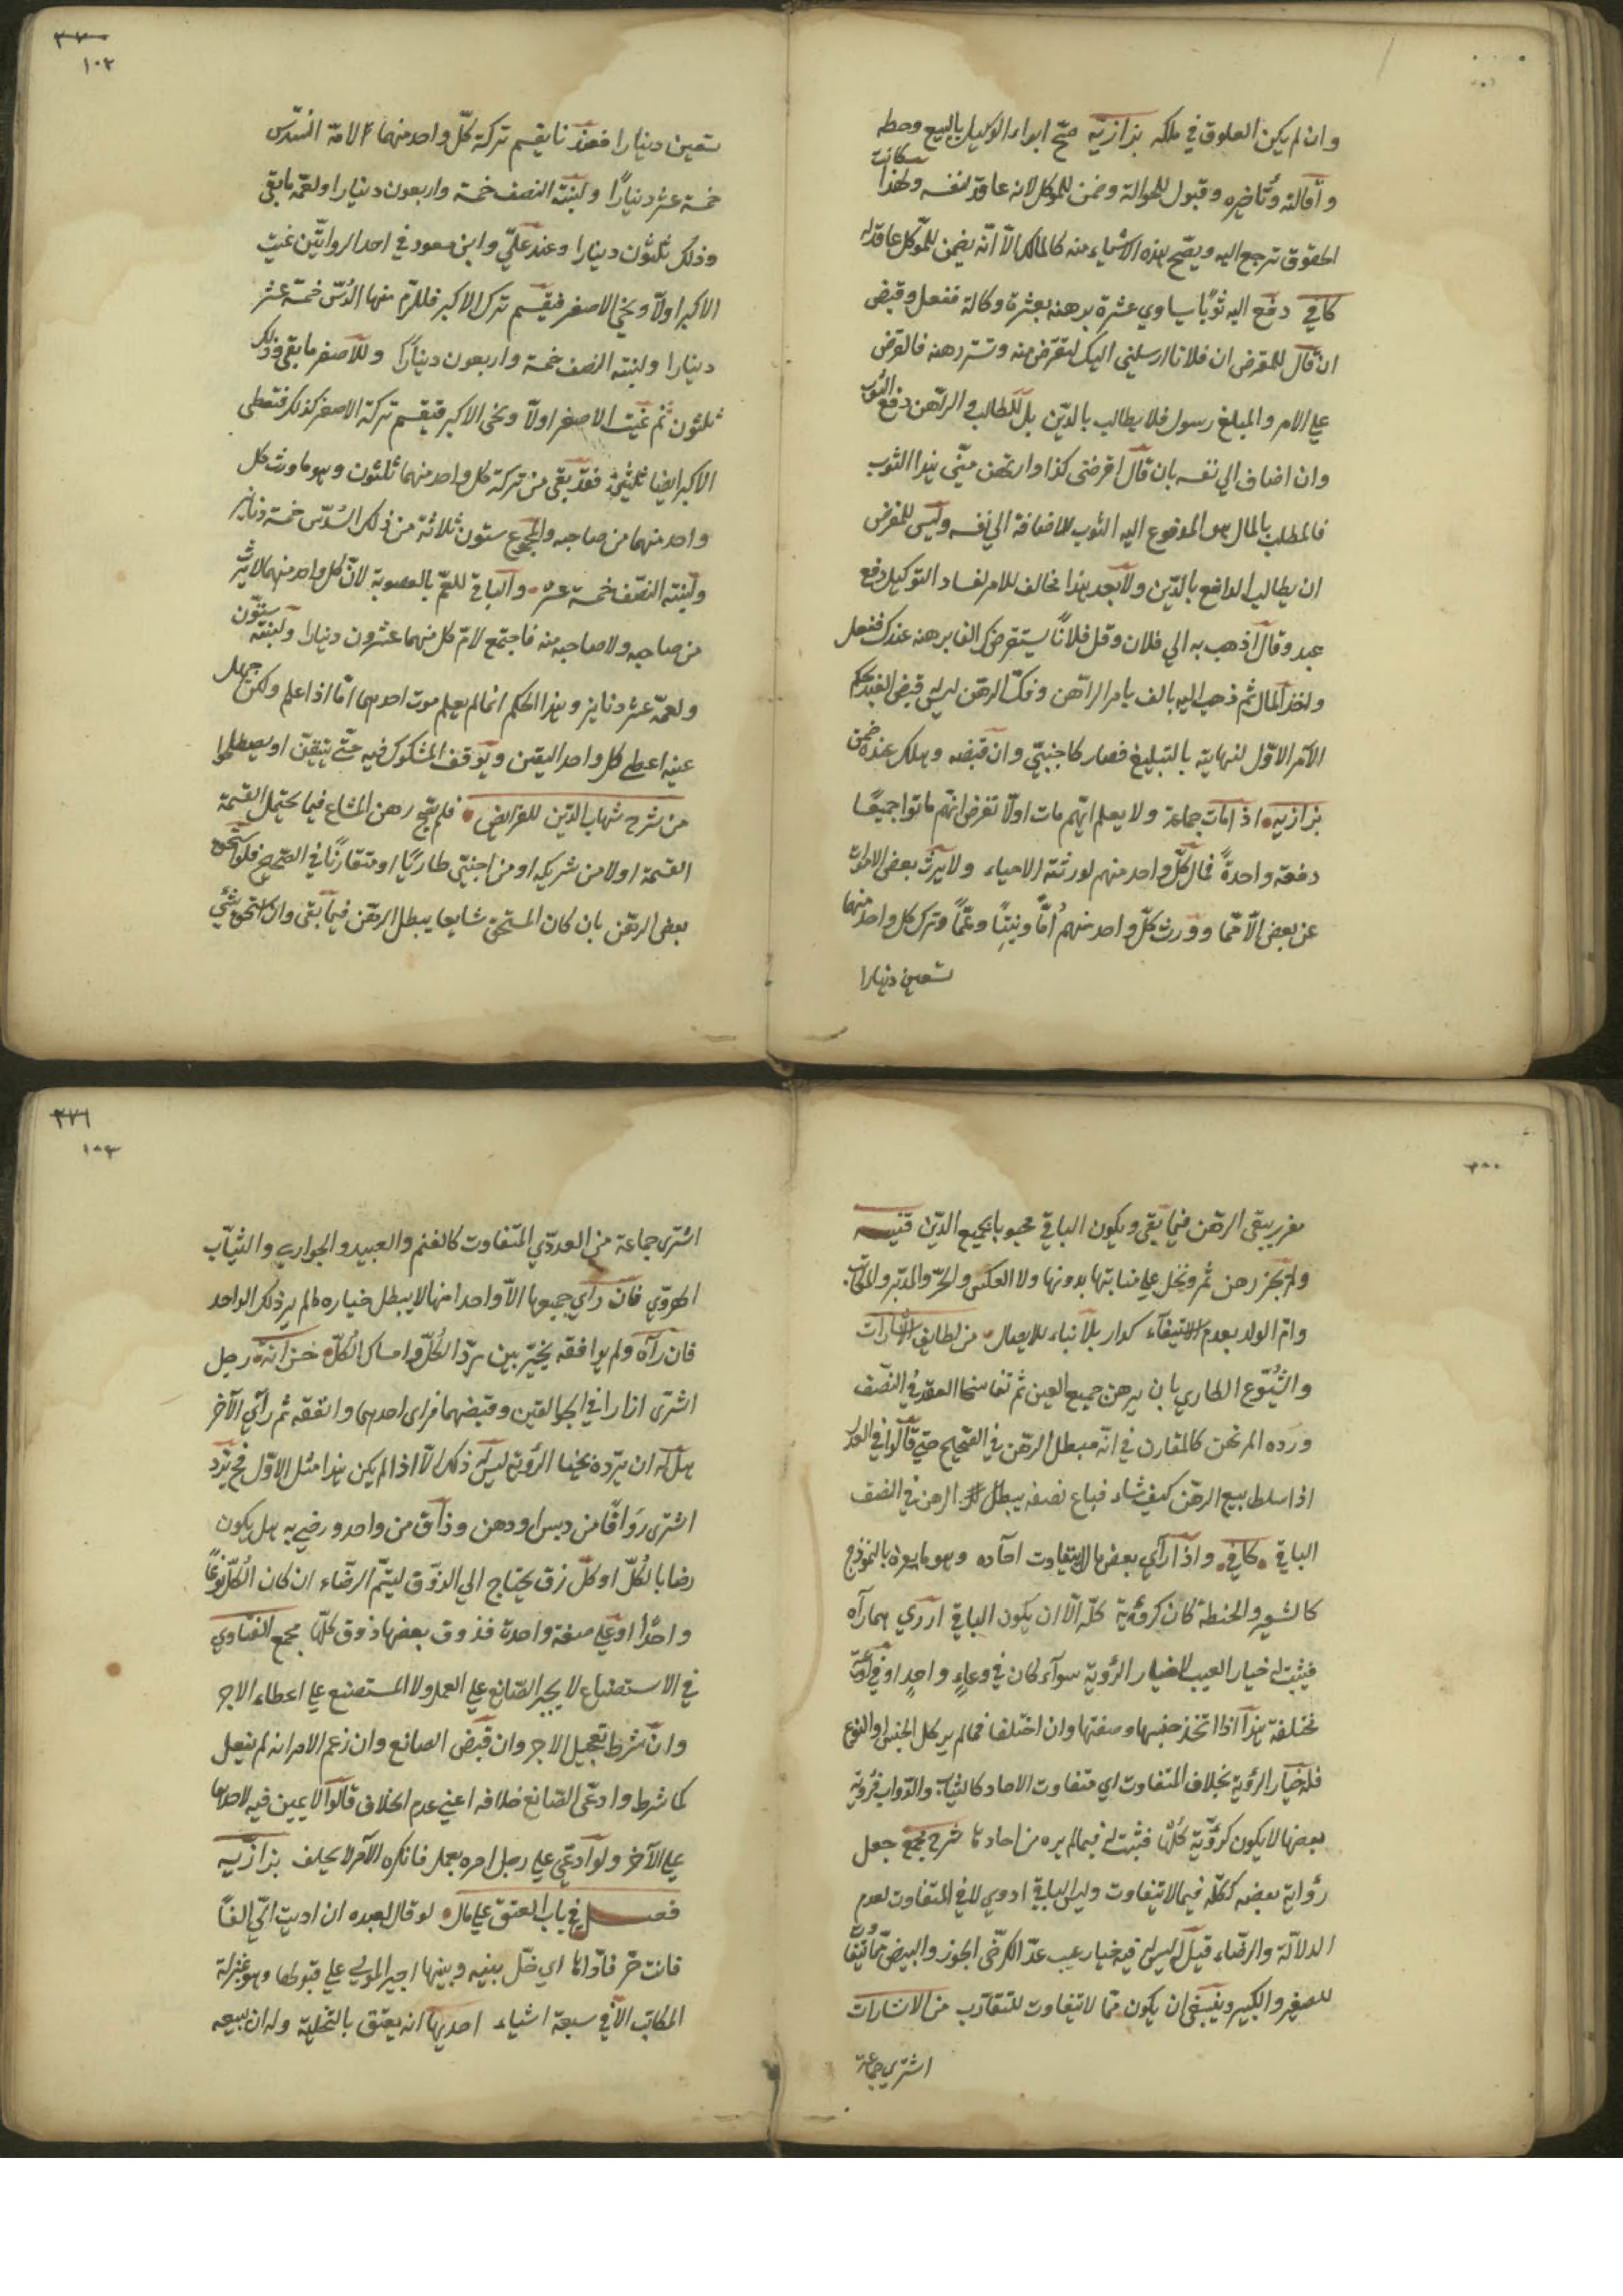 وان لم يكن العلوق في ملكه بزازيه صح ابراء الوكيل بالبيع وحطه
واقالته وتأخيره وقبول للحوالة وضمن للموكل لانه عاقد لنفسه ولهذا كانت
الحقوق ترجع اليه ويصح هذه الاشياء منه كالمالك الّا انّه يضمن للموكل عاقد له
كافي دفع اليه ثوبًا يساوي عشرة يرهنه بعشرة وكالة ففعل وقبض
ان قال للمقرض ان فلانا ارسلني اليك لتقرض منه وتسترد رهنه فالقرض
علي الامر والمبلغ رسول فلا يطالب بالدّين بل للطالب والراهن دفع الثوب
وان اضاف الي نفسه بان قال اقرضني كذا وارتهن منّي هذا الثوب
فالمطلب بالمال هو المدفوع اليه الثوب للاضافة الي نفسه وليس للمقرض
ان يطالب الدافع بالدّين ولا يجد هذا مخالف للامر لفساد التوكيل دفع
عبد وقال اذهب به الي فلان وقل فلانًا يستقرض الفا يرهنه عندك ففعل
واخذ المال ثم ذهب اليه بالف يامر الراهن وفك الرهن ليس له قبض العبد بحكم
الامر الاوّل لنهايته بالتبليغ فصار كاجنبيّ وان قبضه وهلك عنده ضمن
بزازيه اذا مات جماعة ولا يعلم ايّهم مات اولًا تفرض انهم ماتوا جميعًا
دفعة واحدةً فمال كلّ واحد منهم لورثته الاحياء ولا يرث بعض الاموات
عن بعض الّا ممّا وورث كلّ واحد منهم أمّاً وبنتاً وعمّاً وترك كل واحد منهما
تسعين دينارا
٣٧٠
١٠٢
تسعين دينارا فعندنا يقسم تركة كلّ واحد منهما للامّ السّدس
خمسة عشر دينارًا ولبنته النصف خمسة واربعون دينارا ولعمّه ما بقي
وذلك ثلثون دينارا وعند عليّ وابن مسعود في احد الروايتين غيّب
الاكبر اولًا ويحي الاصغر فيقسم ترك الاكبر فللامّ منها السُدس خمسة عشر
دينارا ولبنته النصف خمسة واربعون دينارًا وللاصغر ما بقي وذلك
ثلثون ثم غيّب الاصغر اولًا ويحي الاكبر فتقسم تركة الاصغر كذلك فتعطي
الاكبر ايضا ثلثين فقد بقي من تركة كل واحد منهما ثلثون وهو ما ورث كل
واحد منهما من صاحبه والمجموع ستون ثلاثة من ذلك السُدس خمسة دنانير
ولبنته النصف خمسة عشر والباقي للعمّ بالعصوبة لانّ كل واحد منهما لا يرث
من صاحبه ولا صاحبه منه فاجتمع لامّ كل منهما عشرون دينارا ولبنته ستّون
ولعمّه عشر دنانير وهذا الحكم انما لم يعلم موت احدهما امّا اذا علم ولكن جهل
عينه اعطي كل واحد اليقين ويوقف المشكوك فيه حتّي يتيقن او يصطلحوا
من شرح شهاب الدّين للفرايض فلم يصح رهن المشاع فيما يحتمل القسمة
القسمة اولا من شريكه او من اجنبيّ طاريًا او متقارنًا في الصّحيح فلو استحق
بعض الرهن بان كان المستحق شايعا يبطل الرهن فيما بقي وان استحق شئ
مفرز يبقي الرهن فيما بقي ويكون الباقي محبوسا بجميع الدّين قنيه
ولم يجز رهن ثمر ونخل علي منابتها بدونها ولا العكس والحرّ والمدبّر والمكاتب
وامّ الولد بعدم الاستيفاء كدار بلا بناء للايصال من لطايف الاشارات
والشُيوع الطاري بان يرهن جميع العين ثم تفاسخا العقد في النصف
وردّه المرتهن كالمقارن في انّه مبطل الرهن في الصّحيح حتي قالوا في العدل
اذا سلط ببيع الرهن كيف شاء فباع نصفه يبطل الرهن في النصف
الباقي كافي واذا رأي بعض ما لا يتفاوت آحاده وهو ما يعرف بالنموذج
كالشعير والحنطة كان كرؤية كلّه الّا ان يكون الباقي اردي مما رآه
فيثبت له خيار العيب لا خيار الرؤية سواء كان في وعاءٍ واحدٍ او في اوعية
مختلفة هذا اذا اتخذ جنسها وصفتها وان اختلفا فما لم ير كل الجنس والنوع
فله خيار الرؤية بخلاف المتفاوت اي متفاوت الاحاد كالثياب والدّواب فرؤية
بعضها لا يكون كرؤية كلّها فيثبت له فيما لم يره من احادها شرح مجمع جعل
رؤاية بعضه ككلّه فيما لا يتفاوت وليس الباقي ادوي لا في المتفاوت لعدم
الدلالة والرضاء قيل له ليس له فيه خيار عيب عدّ الكرخي الجوز والبيض متفاوتا
للصغير والكبير وينبغي ان يكون ممّا لا يتفاوت للتقارب من الاشارات
اشتري جماعة
٣٧١
١٠٣
اشتري جماعة من العددّي المتفاوت كالغنم والعبيد والجواري والثياب
الهروي فان رأي جميعها الّا واحدا منها لا يبطل خياره ما لم ير ذلك الواحد
فان رآه ولم يوافقه يخيّر بين ردّ الكُلّ وامساك الكُلّ خزانة رجل
اشتري ازارا في الجوالقين وقبضهما فراي احدهما وانفقه ثم رأي الآخر
هل له ان يردّه بخيار الرؤية ليس له ذلك الّا اذا لم يكن هذا مثل الاوّل فح يردّ
اشتري زقاقًا من دبس او دهن وذاق من واحد ورضي به هل يكون
رضا بالكُلّ او كلّ زق يحتاج الي الذوّق ليتمّ الرضاء ان كان الكُلّ نوعًا
واحدًا او علي صفة واحدة فذوق بعضها ذوق كلّها مجمع الفتاوي
في الاستصناع لا يجبر الصّانع علي العمل ولا المستصنع علي اعطاء الاجر
وان شرط تعجيل الاجر وان قبض الصانع وان زعم الامر انه لم يفعل
كما شرط وادعي الصّانع خلافه اعني عدم الخلاف قالوا لا يمين فيه لاحدهما
علي الآخر ولو ادعي علي رجل امره بعمل فانكره الآمر لا يحلف بزازيه
فصل في باب العتق علي مال لو قال لعبده ان اديت اليّ الفًا
فانت حرّ فادّاها اي خلّ بينه وبينها اجبر المولي علي قبولها وهو بمنزلة
المكاتب الّا في سبعة اشياء احديها انه يعتق بالتخلية وله ان يبيعه